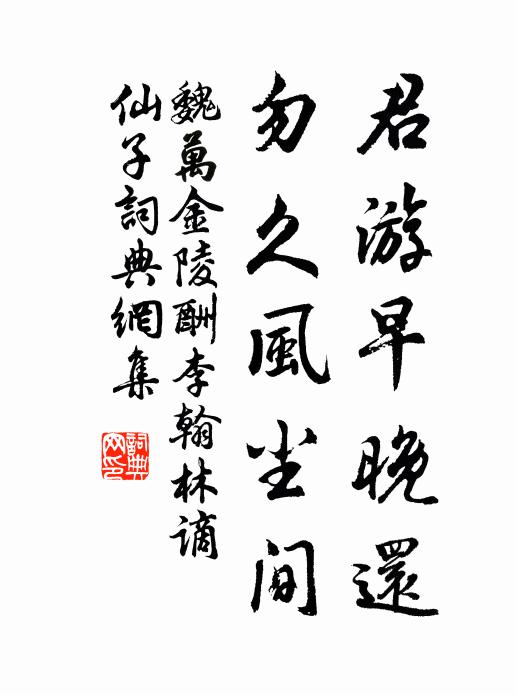 君游早晚還
勿久風尘间
魏萬金陵酬李翰林谪
仙子詞典網集
詞典
网印